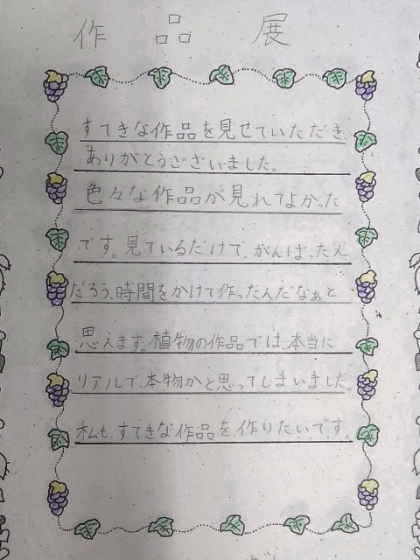 作品展
すてきな作品を見せていただき、
ありがとうございました。
色々な作品が見れてよかった
です。見ているだけで、がんばったん
だろう、時間をかけて作ったんだなぁと
思えます。植物の作品では、本当に
リアルで、本物かと思ってしまいました。
私も、すてきな作品を作りたいです。